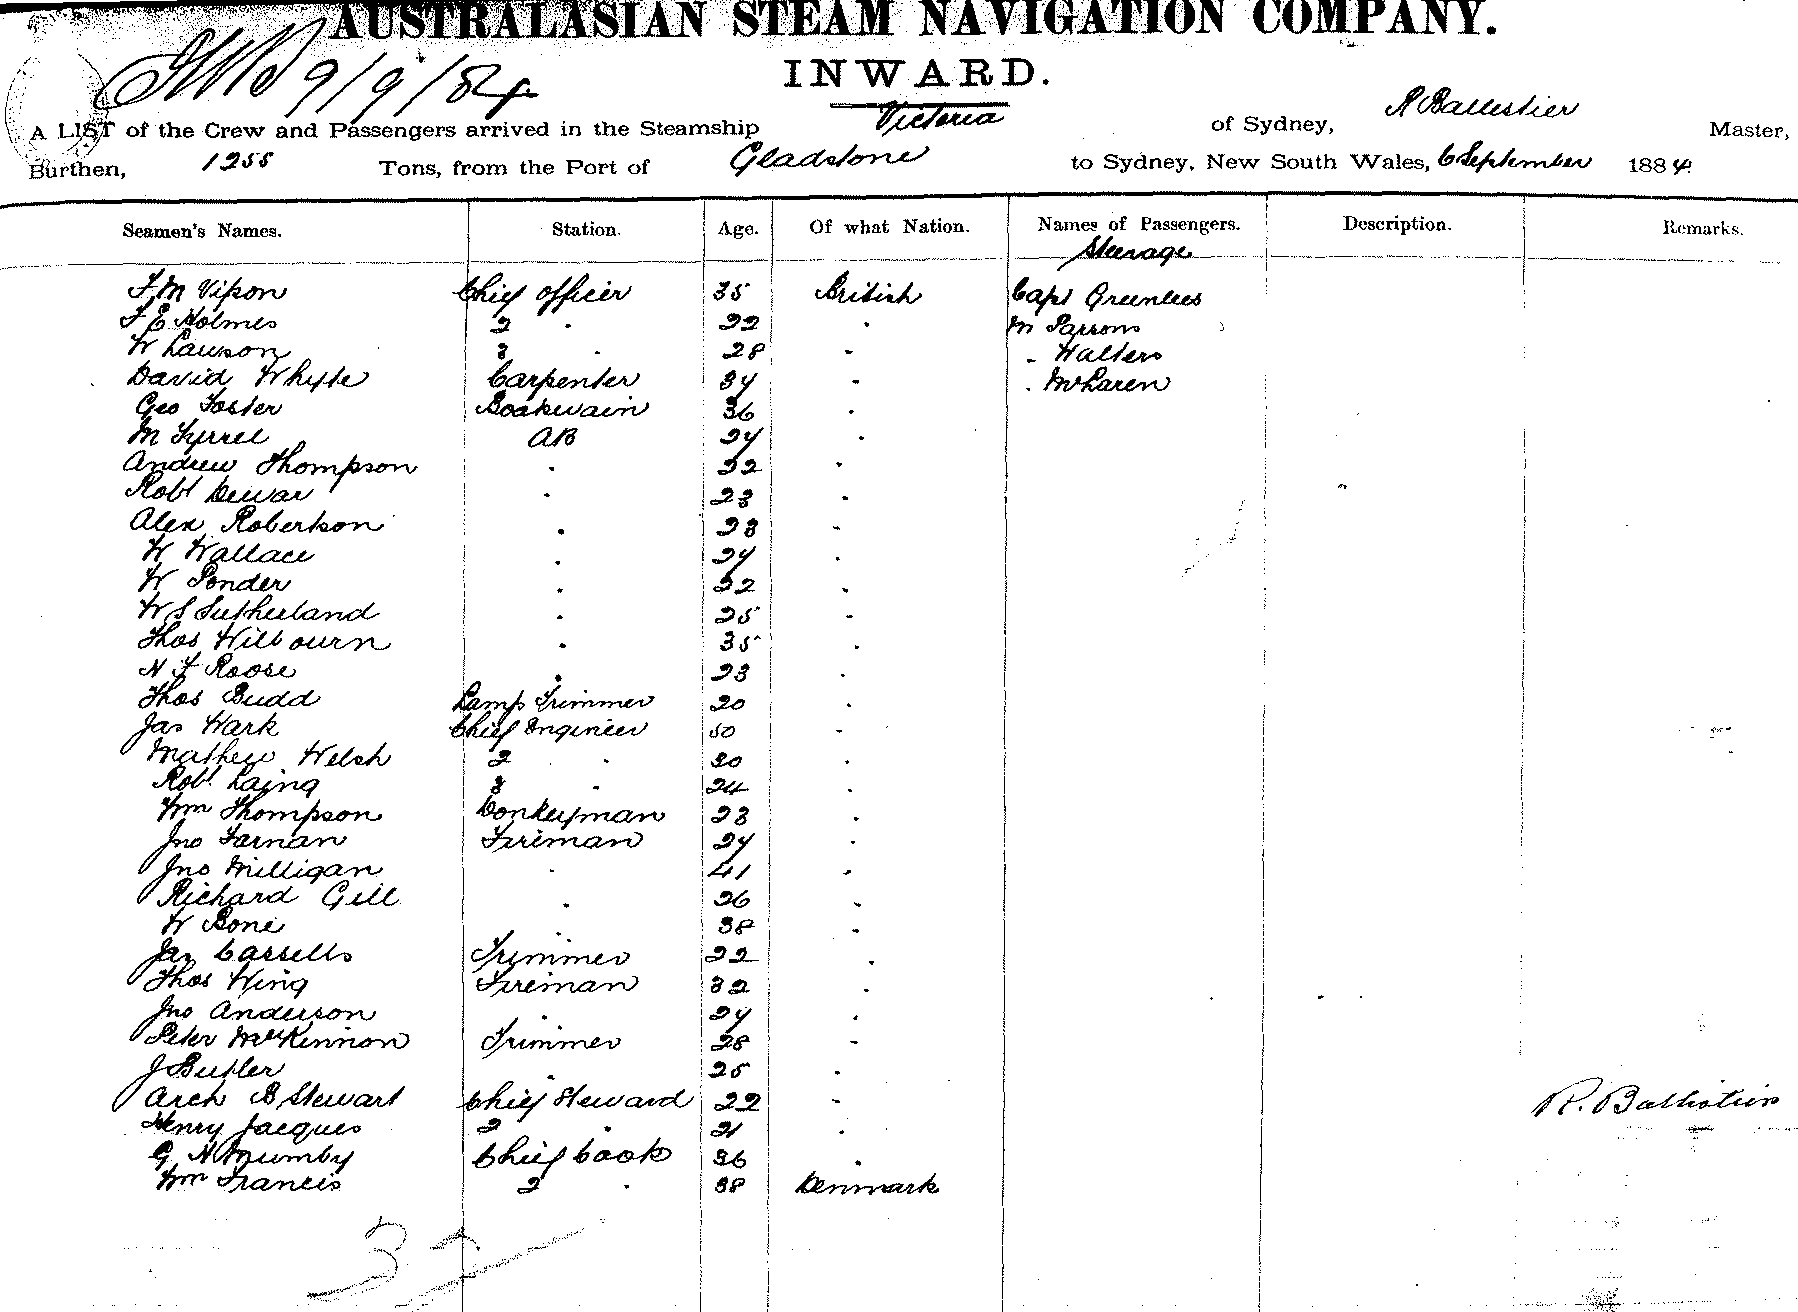 AUSTRALASIAN STEAM NAVIGATION COMPANY.
9/9/84
INWARD.
A LIST of the Crew and Passengers arrived in the Steamship Victoria of Sydney, R Ballestier Master,
Burthen, 1255 Tons, from the Port of Gladstone to Sydney, New South Wales, 6 September 1884
Seamen's Names. Station. Age. Of what Nation. Names of Passengers. Description. Remarks.
Steerage
F M Vipon Chief officer 35 British Capt Greenlees
F E Holmes 2 " 22 " M Parsons
W Lawson 3 " 28 " " Walters
David Whyte Carpenter 34 " " McLaren
Geo Foster Boatswain 36 "
M Tyrrel AB 24 "
Andrew Thompson " 22 "
Robt Dewar " 23 "
Alex Robertson " 23 "
W Wallace " 24 "
W Ponder " 22 "
W S Sutherland " 25 "
Thos Wilbourn " 35 "
N F Roose " 23 "
Thos Budd Lamp Trimmer 20 "
Jas Wark Chief Engineer 50 "
Mathew Welsh 2 " 30 "
Robt Laing 3 " 24 "
Wm Thompson Donkeyman 23 "
Jno Farnan Fireman 24 "
Jno Milligan " 41 "
Richard Gill " 26 "
W Bone " 38 "
Jas Cassells Trimmer 22 "
Thos King Fireman 32 "
Jno Anderson " 24 "
Peter McKinnon Trimmer 28 "
J Butler " 25 "
Arch B Stewart Chief Steward 22 " R. Ballistier
Henry Jacques 2 " 21 "
G N Mumby Chief Cook 36 "
Wm Francis 2 " 38 Denmark
32